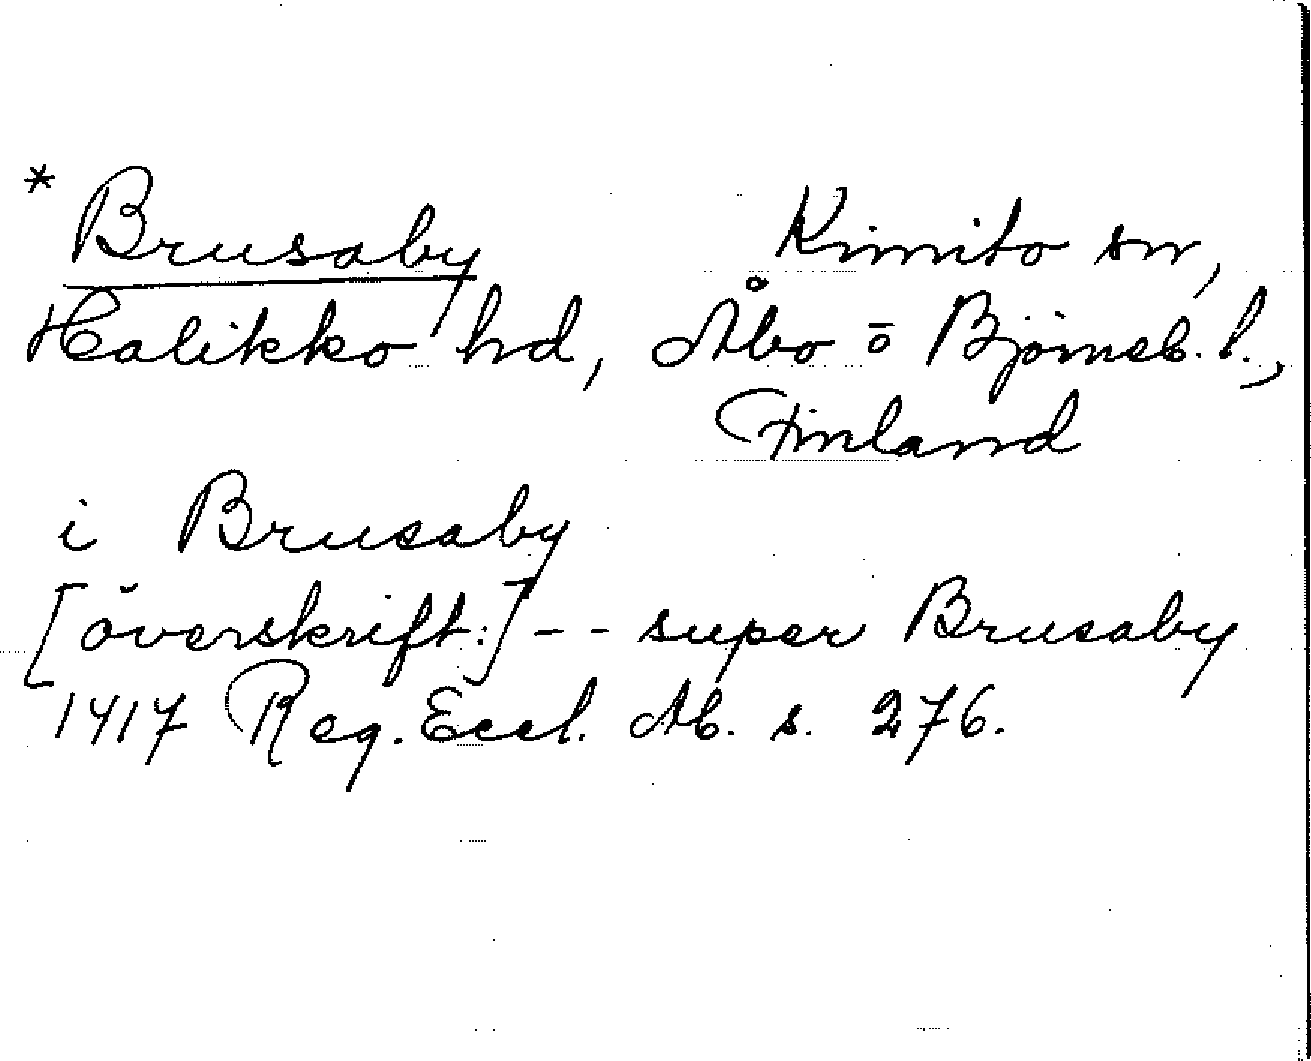 * Brusaby Kimito sn,
Halikko hd, Åbo o Björneb. l.,
Finland
i Brusaby
[överskrift:] -- super Brusaby
1417 Reg. Eccl. Ab. s. 276.